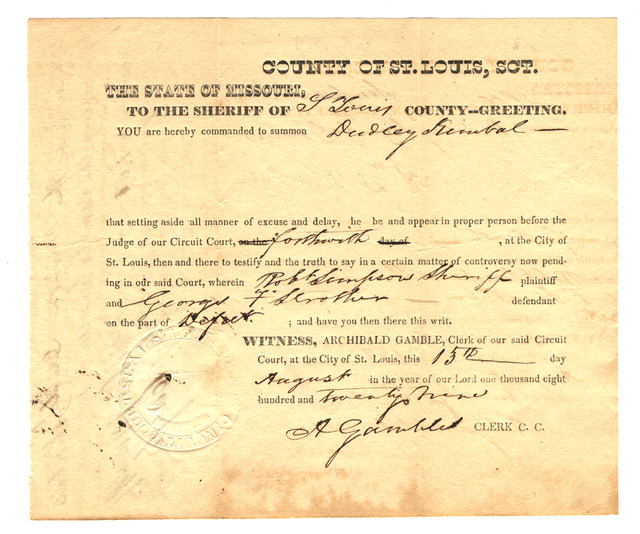 COUNTY OF ST. LOUIS, SCT.
THE STATE OF MISSOURI,
TO THE SHERIFF OF St Louis COUNTY--GREETING.
YOU are hereby commanded to summon Dudley Kimbal —
that setting aside all manner of excuse and delay, he be and appear in proper person before the
Judge of our Circuit Court, on the forthwith day of , at the City of
St. Louis, then and there to testify and the truth to say in a certain matter of controversy now pend-
ing in our said Court, wherein Robt Simpson Sheriff plaintiff
and George F Strother — defendant
on the part of Defnt. ; and have you then there this writ.
WITNESS, ARCHIBALD GAMBLE, Clerk of our said Circuit
Court, at the City of St. Louis, this 15th — day
August in the year of our Lord one thousand eight
hundred and twenty nine
A Gamble CLERK C. C.